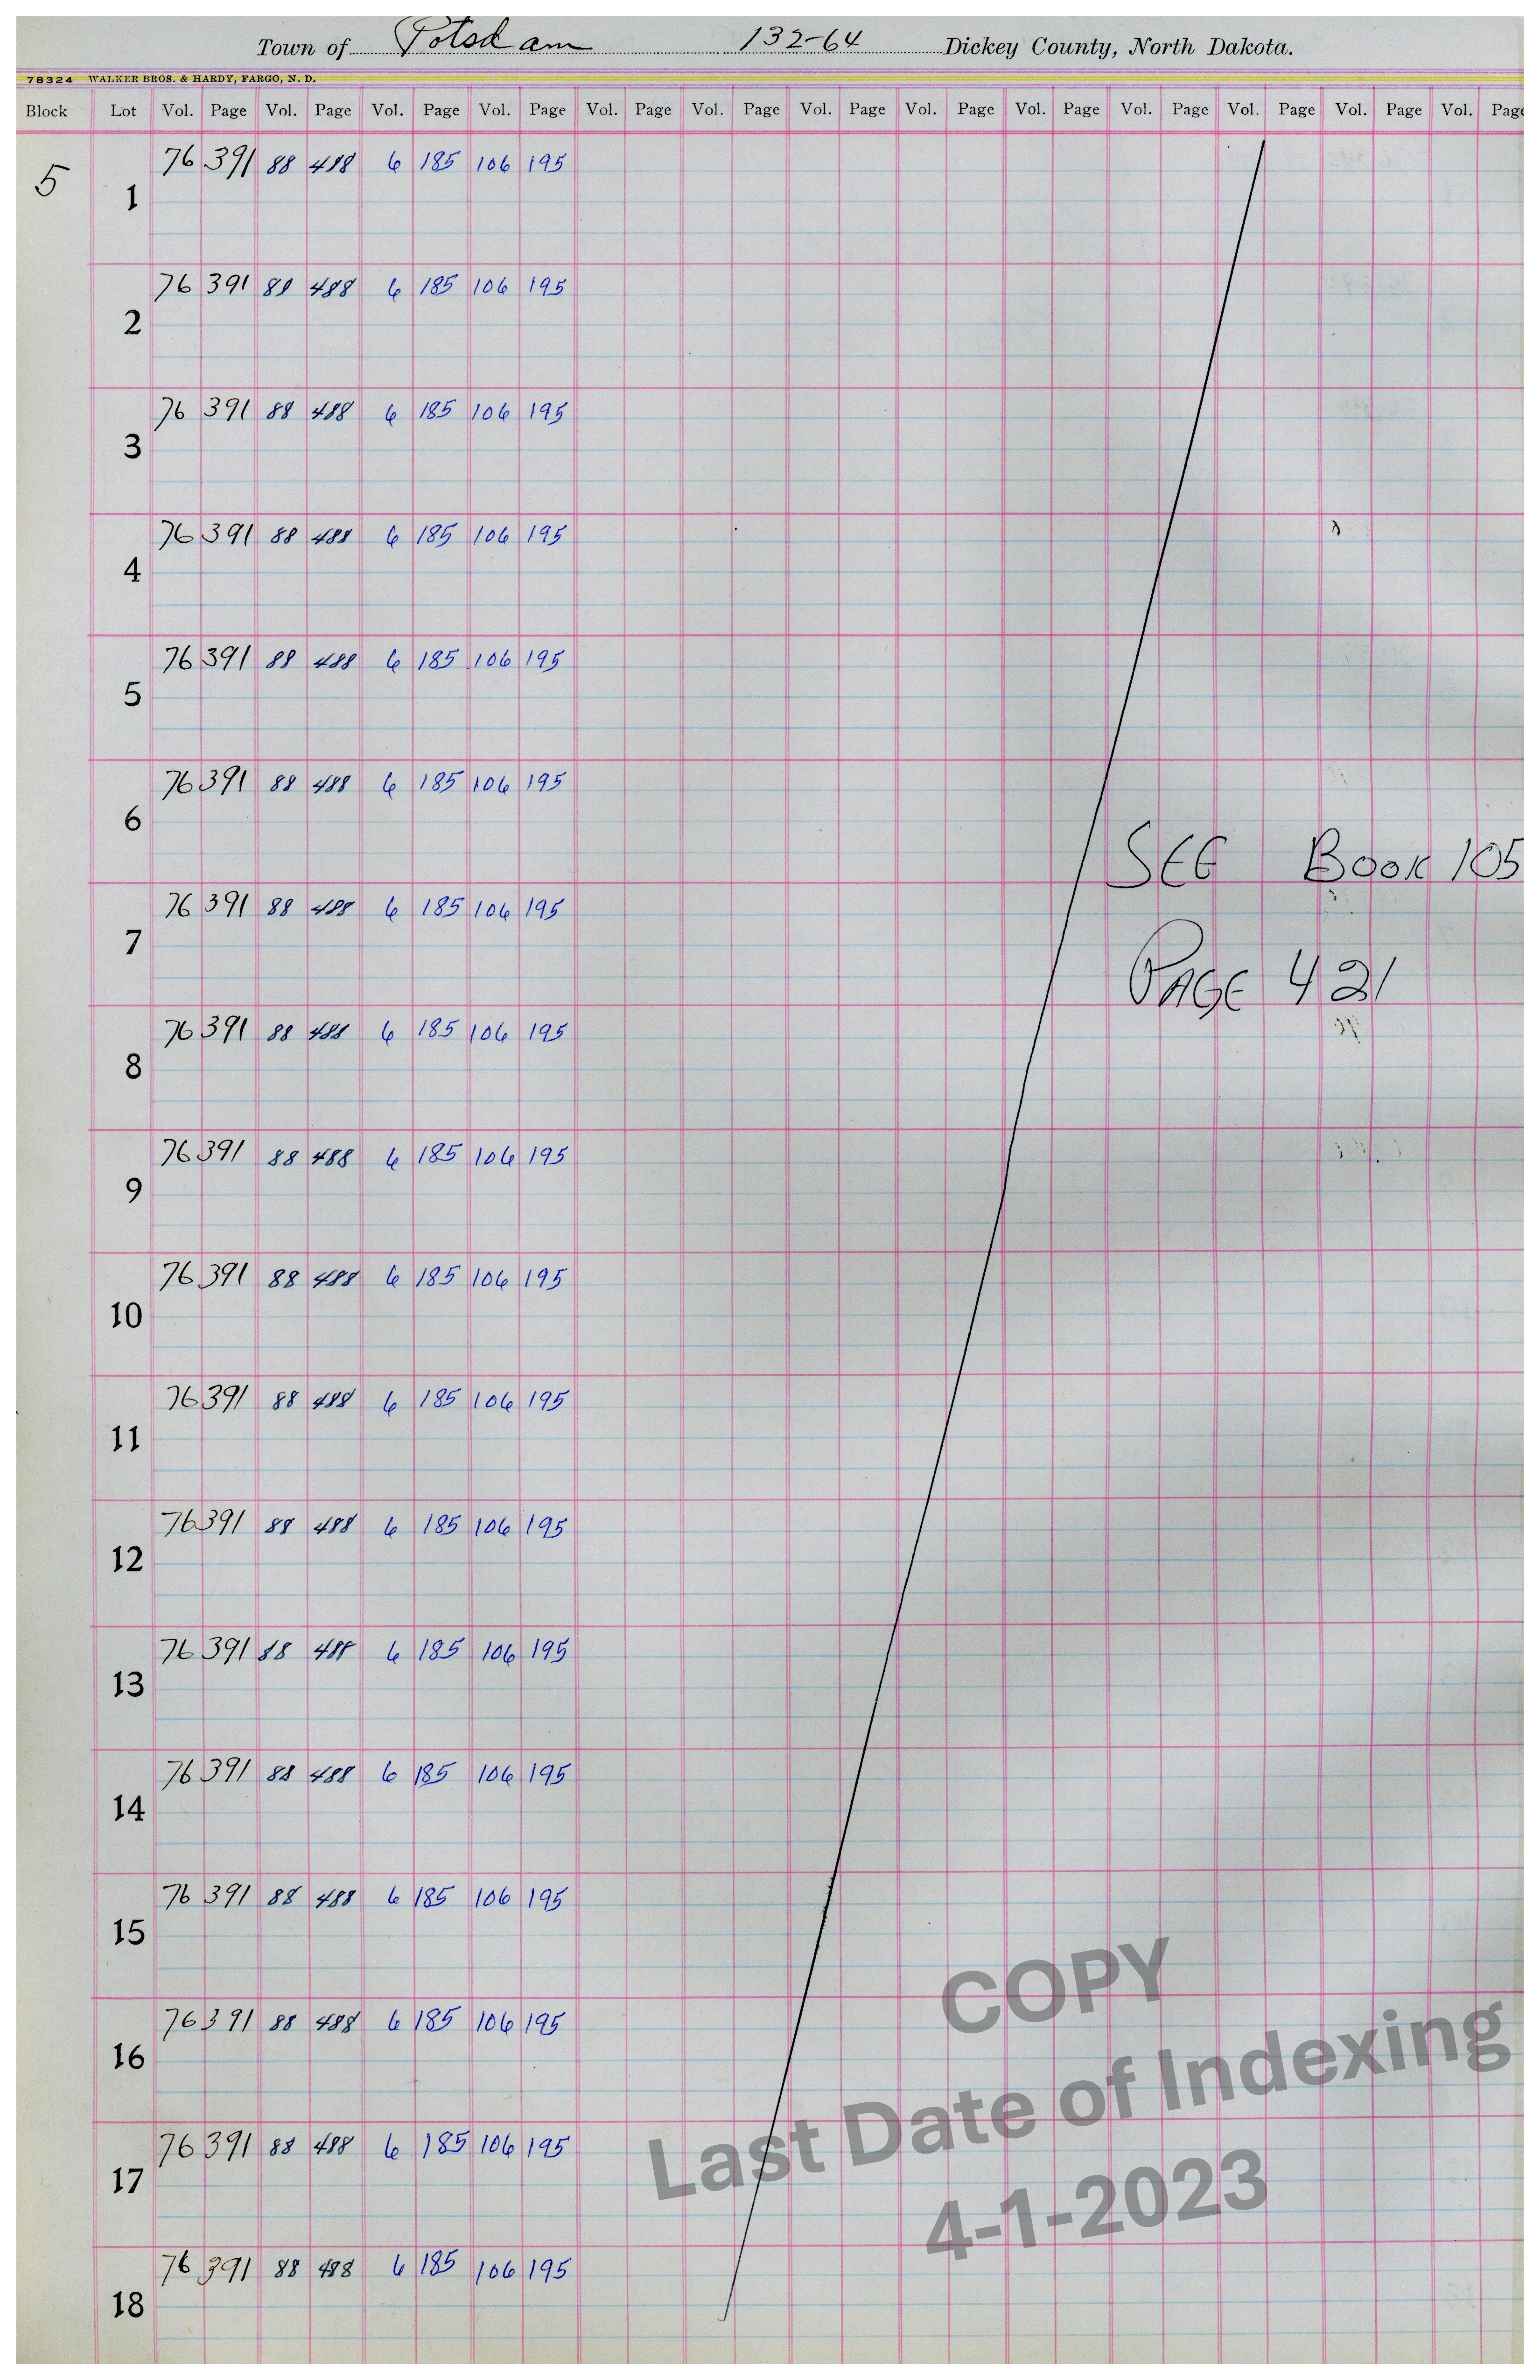 Town of Potsdam 132-64 Dickey County, North Dakota.
78324 WALKER BROS. & HARDY, FARGO, N. D.
Block Lot Vol. Page Vol. Page Vol. Page Vol. Page Vol. Page Vol. Page Vol. Page Vol. Page Vol. Page Vol. Page Vol. Page Vol. Page Vol. Page
5 1 76 391 88 488 6 185 106 195
2 76 391 88 488 6 185 106 195
3 76 391 88 488 6 185 106 195
4 76 391 88 488 6 185 106 195
5 76 391 88 488 6 185 106 195
6 76 391 88 488 6 185 106 195
SEE Book 105
7 76 391 88 488 6 185 106 195
PAGE 421
8 76 391 88 488 6 185 106 195
9 76 391 88 488 6 185 106 195
10 76 391 88 488 6 185 106 195
11 76 391 88 488 6 185 106 195
12 76 391 88 488 6 185 106 195
13 76 391 88 488 6 185 106 195
14 76 391 88 488 6 185 106 195
15 76 391 88 488 6 185 106 195
16 76 391 88 488 6 185 106 195
17 76 391 88 488 6 185 106 195
18 76 391 88 488 6 185 106 195
COPY
Last Date of Indexing
4-1-2023